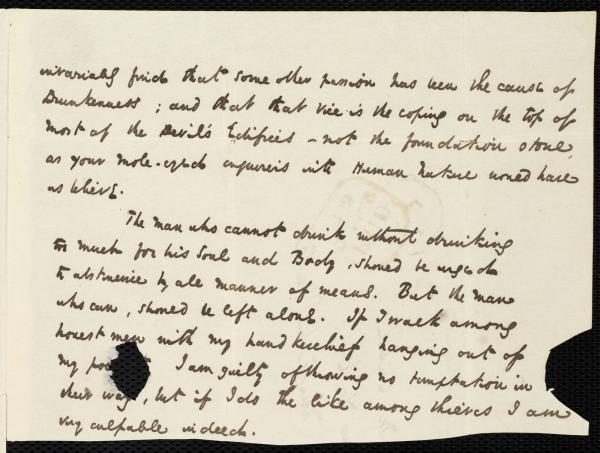 invariably find that some other passion has been the cause of
Drunkenness; and that that vice is the coping on the top of
most of the Devil's Edifices – not the foundation stone,
as your mole-eyed enquirers into Human Nature would have
us believe.
The man who cannot drink without drinking
too much for his Soul and Body, should be urged
to abstinence by all manner of means. But the man
who can, should be left alone. If I walk among
honest men with my handkerchief hanging out of
my po t I am guilty of throwing no temptation in
their way, but if I do the like among thieves I am
very culpable indeed.